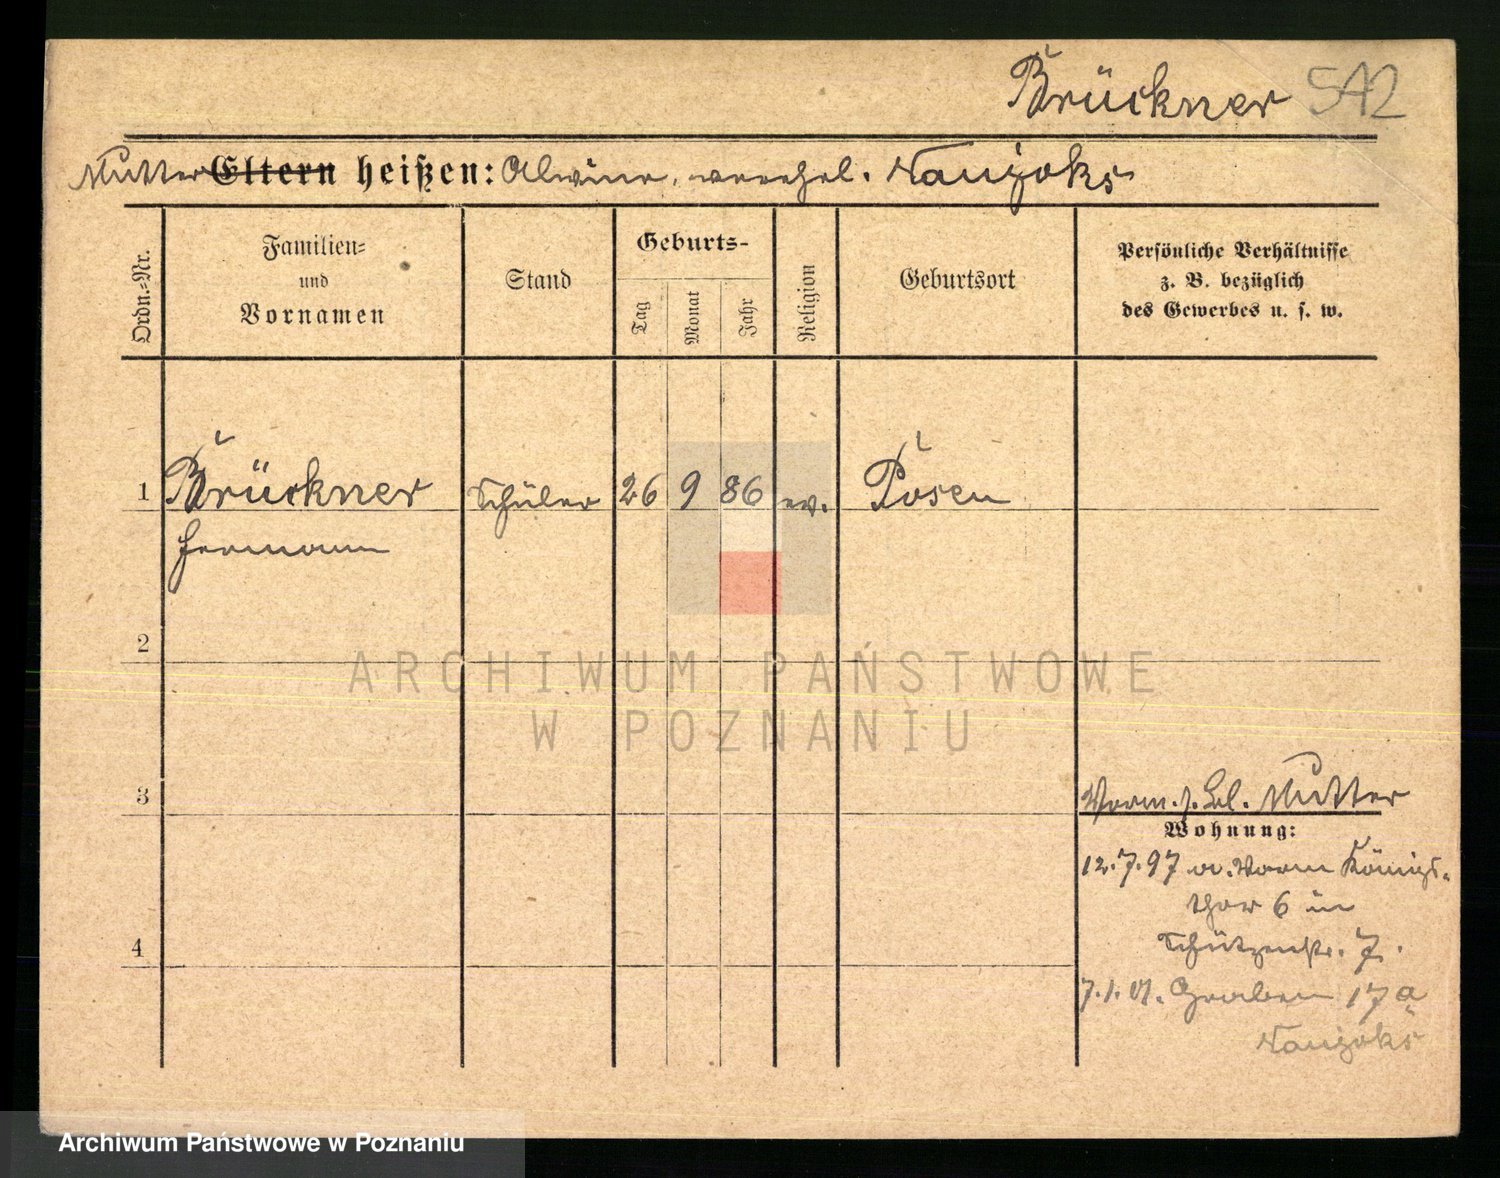 Brückner 542
Mutter Eltern heißen: Alwine, verehel. Naujoks
Ordn.-Nr.
Familien-
und
Vornamen
Stand
Geburts-
Tag
Monat
Jahr
Religion
Geburtsort
Persönliche Verhältnisse
z. B. bezüglich
des Gewerbes u. s. w.
1 Brückner Schüler 26 9 86 ev. Posen
Hermann
2
ARCHIWUM PAŃSTWOWE
W POZNANIU
3
Mutter
Wohnung:
12.7.97 Königs-
thor 6 in
4
Schützenstr. 7.
7.1.01. Graben 17a
Naujoks
Archiwum Państwowe w Poznaniu